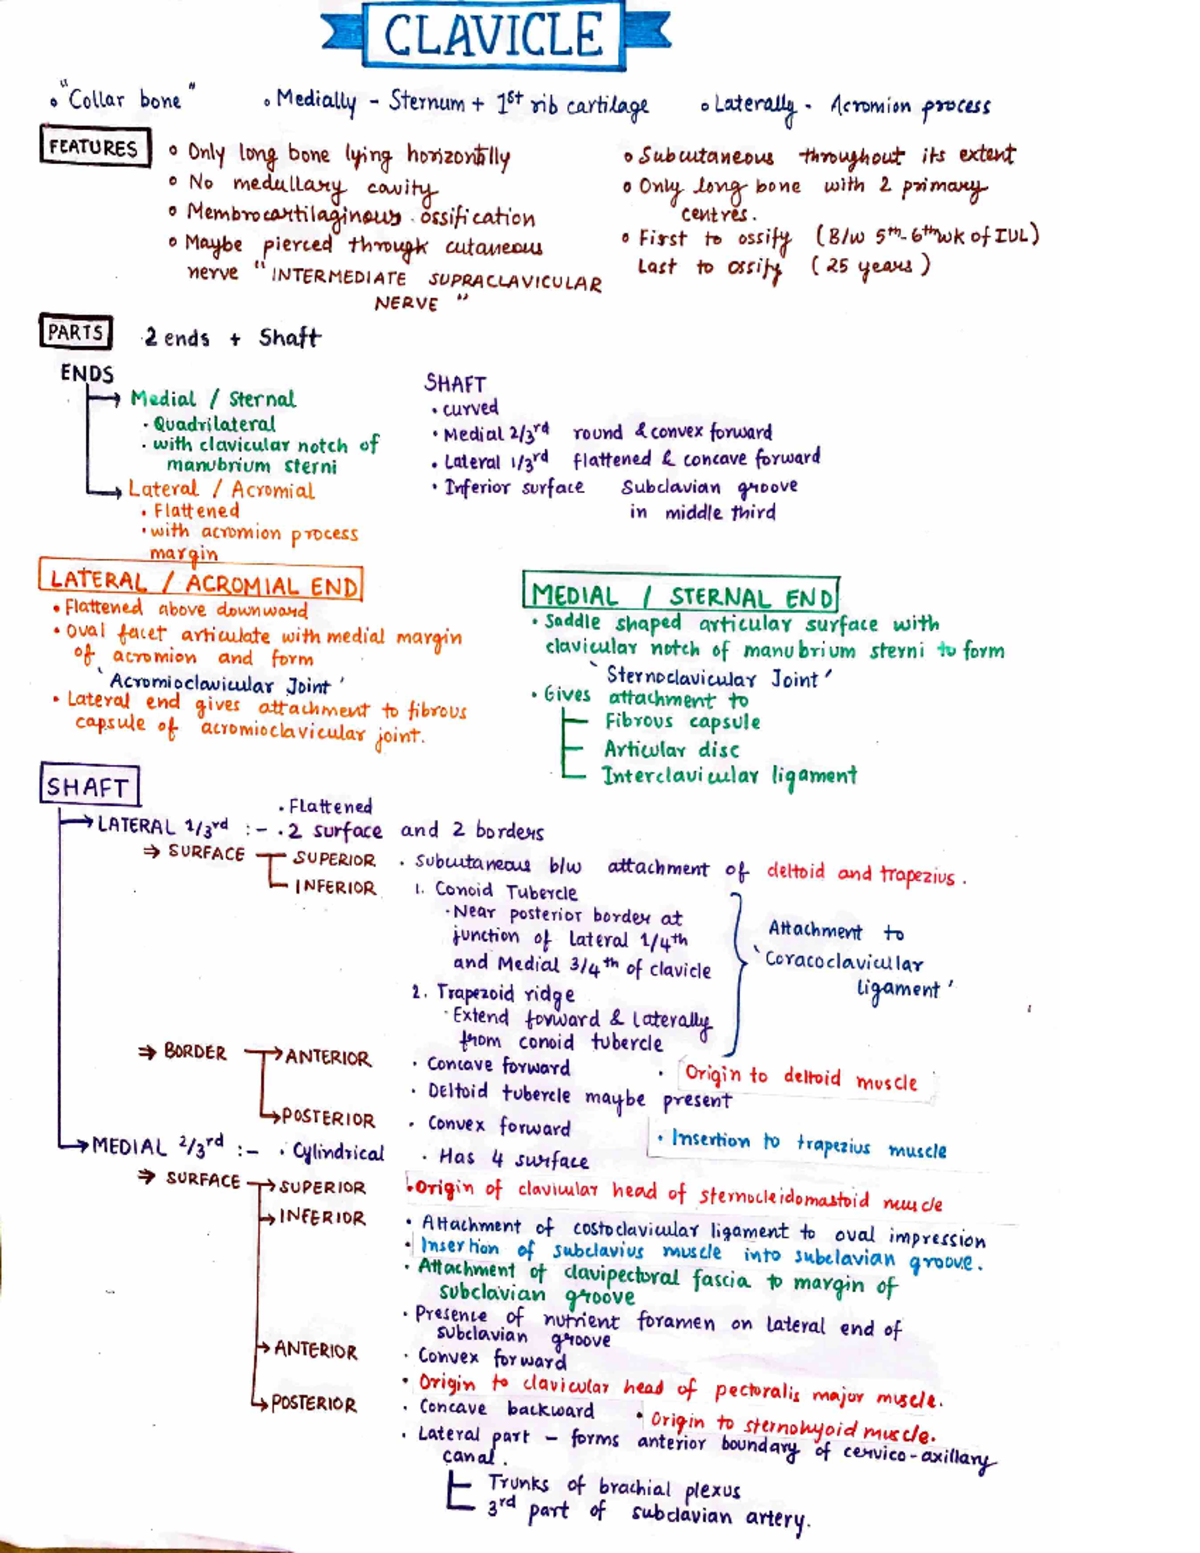 CLAVICLE
• "Collar bone" • Medially - Sternum + 1st rib cartilage • Laterally - Acromion process
FEATURES
• Only long bone lying horizontally
• No medullary cavity
• Membrocartilaginous ossification
• Maybe pierced through cutaneous
nerve "INTERMEDIATE SUPRACLAVICULAR
NERVE"
• Subcutaneous throughout its extent
• Only long bone with 2 primary
centres.
• First to ossify (B/w 5th-6th wk of IUL)
Last to ossify (25 years)
PARTS 2 ends + Shaft
ENDS
Medial / Sternal
· Quadrilateral
· with clavicular notch of
manubrium sterni
Lateral / Acromial
· Flattened
· with acromion process
margin
SHAFT
· curved
· Medial 2/3rd round & convex forward
· Lateral 1/3rd flattened & concave forward
· Inferior surface Subclavian groove
in middle third
LATERAL / ACROMIAL END
• Flattened above downward
• Oval facet articulate with medial margin
of acromion and form
'Acromioclavicular Joint'
• Lateral end gives attachment to fibrous
capsule of acromioclavicular joint.
MEDIAL / STERNAL END
· Saddle shaped articular surface with
clavicular notch of manubrium sterni to form
'Sternoclavicular Joint'
· Gives attachment to
Fibrous capsule
Articular disc
Interclavicular ligament
SHAFT
· Flattened
→ LATERAL 1/3rd :- · 2 surface and 2 borders
⇒ SURFACE SUPERIOR · Subcutaneous b/w attachment of deltoid and trapezius.
INFERIOR 1. Conoid Tubercle
· Near posterior border at
junction of lateral 1/4th
and Medial 3/4th of clavicle
2. Trapezoid ridge
· Extend forward & laterally
from conoid tubercle
Attachment to
'Coracoclavicular
ligament'
⇒ BORDER → ANTERIOR · Concave forward · Origin to deltoid muscle
· Deltoid tubercle maybe present
→ POSTERIOR · Convex forward · Insertion to trapezius muscle
→ MEDIAL 2/3rd :- · Cylindrical · Has 4 surface
⇒ SURFACE → SUPERIOR · Origin of clavicular head of sternocleidomastoid muscle
→ INFERIOR · Attachment of costoclavicular ligament to oval impression
· Insertion of subclavius muscle into subclavian groove.
· Attachment of clavipectoral fascia to margin of
subclavian groove
· Presence of nutrient foramen on lateral end of
subclavian groove
→ ANTERIOR · Convex forward
· Origin to clavicular head of pectoralis major muscle.
→ POSTERIOR · Concave backward · Origin to sternohyoid muscle.
· Lateral part - forms anterior boundary of cervico-axillary
canal.
Trunks of brachial plexus
3rd part of subclavian artery.